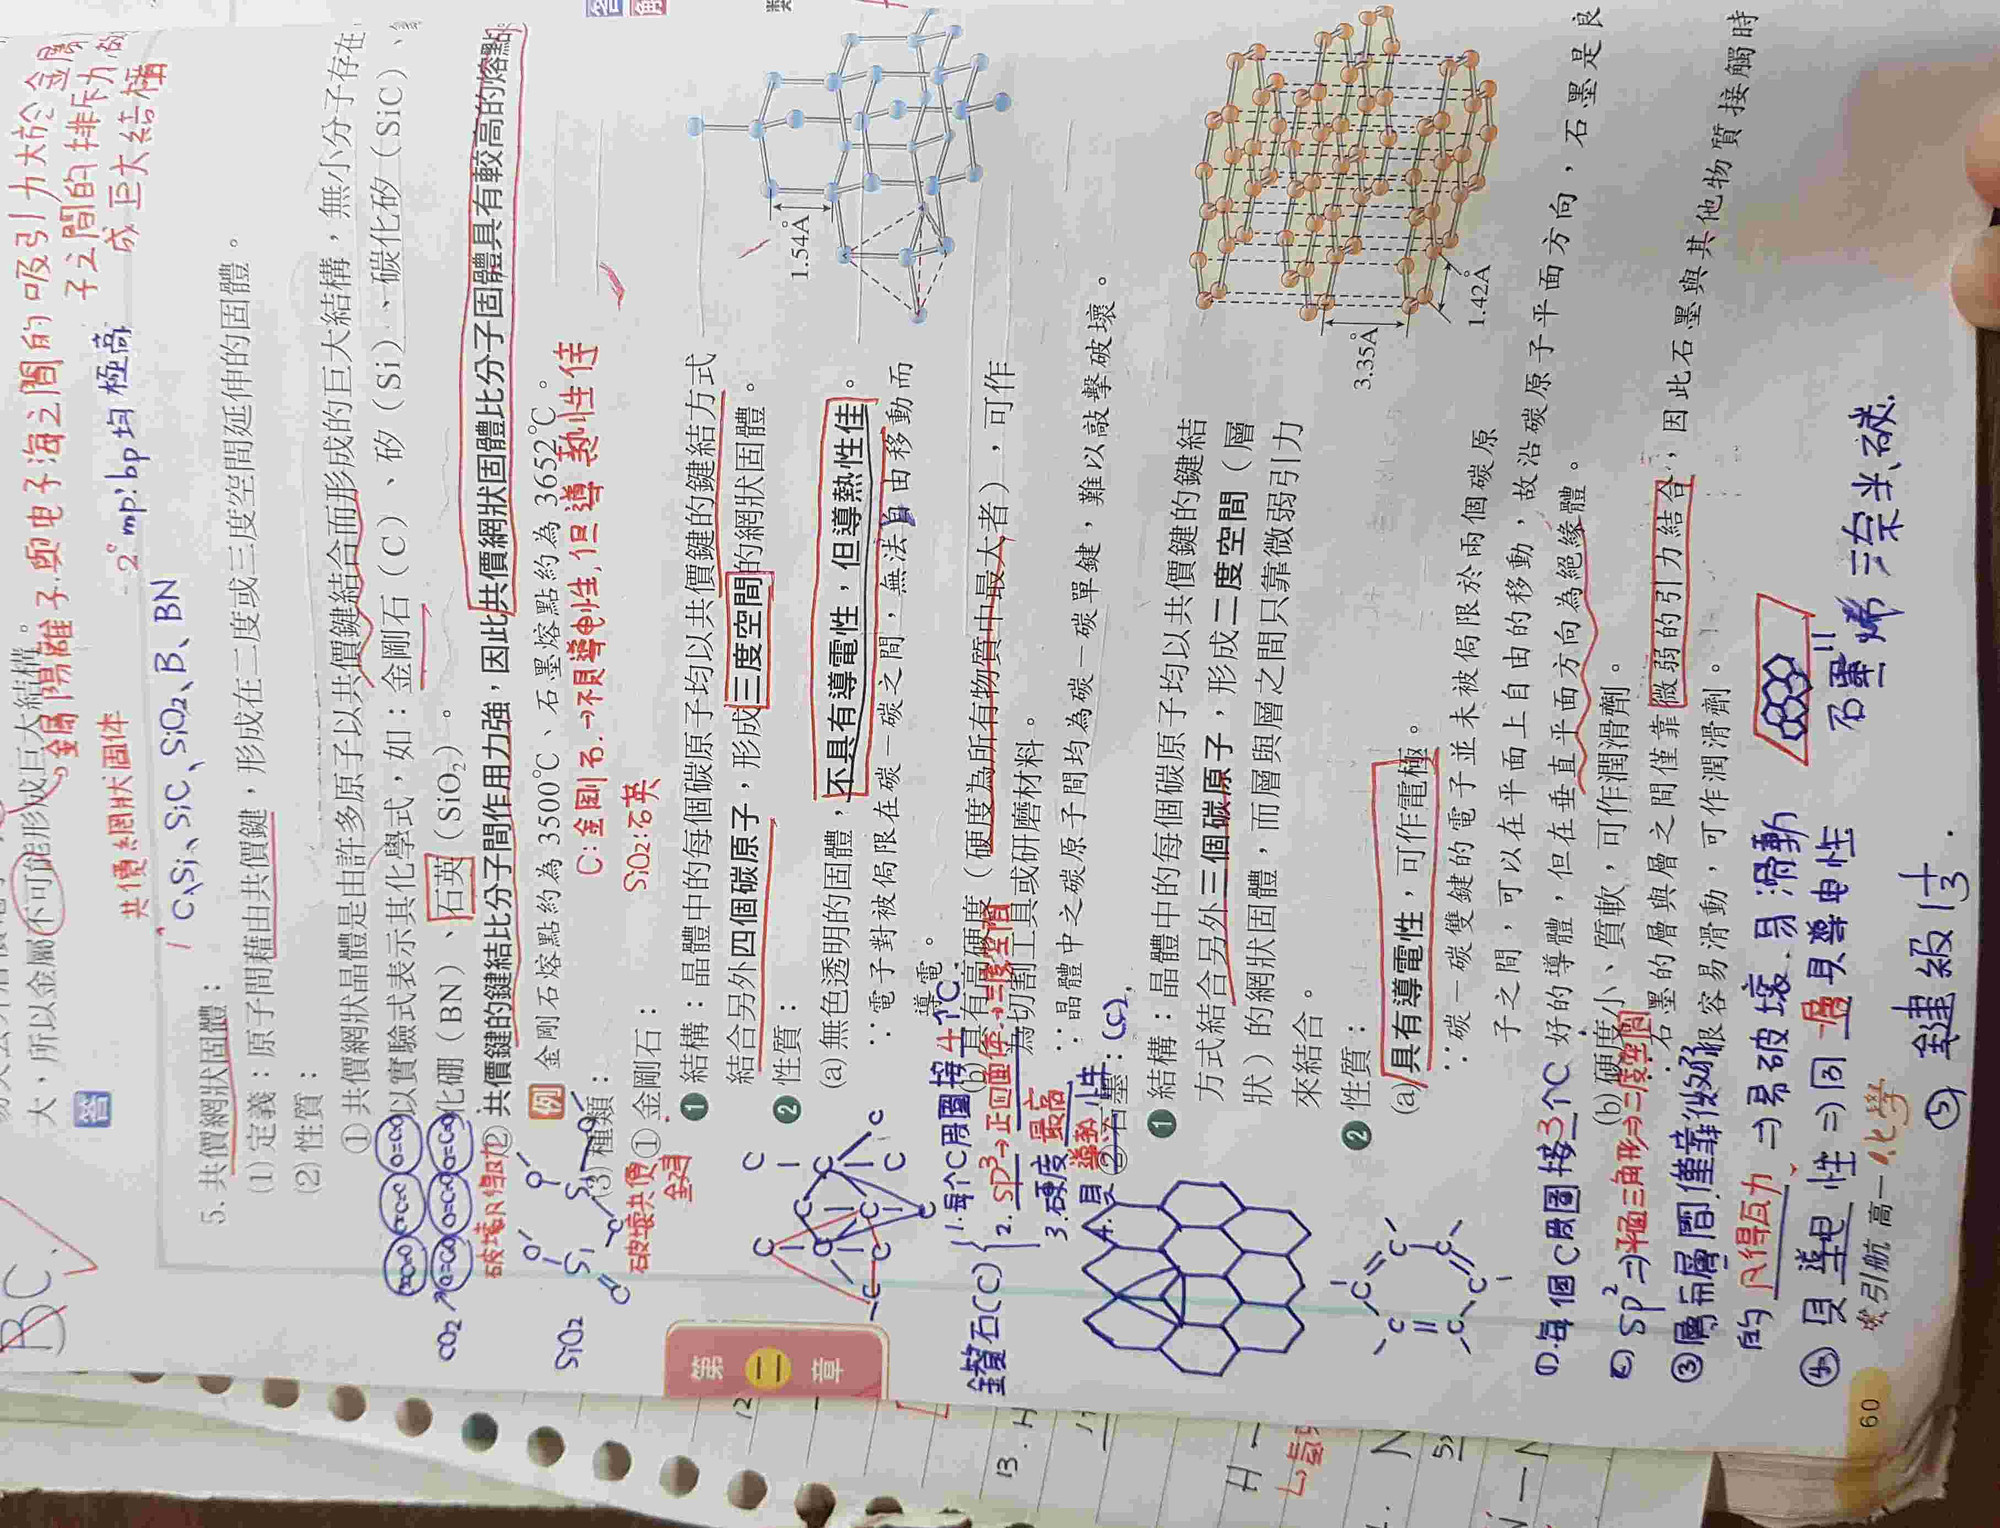 大,所以金屬不可能形成巨大結構。
金屬陽離子與电子海之間的吸引力大於金屬
子之間的排斥力,故
成巨大結構
答
共價網狀固体
2° mp、bp均極高
1° C、Si、SiC、SiO₂、B、BN
5. 共價網狀固體:
(1) 定義:原子間藉由共價鍵,形成在二度或三度空間延伸的固體。
(2) 性質:
① 共價網狀晶體是由許多原子以共價鍵結合而形成的巨大結構,無小分子存在
以實驗式表示其化學式,如:金剛石(C)、矽(Si)、碳化矽(SiC)、
化硼(BN)、石英(SiO₂)。
② 共價鍵的鍵結比分子間作用力強,因此共價網狀固體比分子固體具有較高的熔點
例 金剛石熔點約為 3500℃、石墨熔點約為 3652℃。
C:金剛石→不具導电性,但導熱性佳
SiO₂:石英
(3) 種類:
① 金剛石:
❶ 結構:晶體中的每個碳原子均以共價鍵的鍵結方式
結合另外四個碳原子,形成三度空間的網狀固體。
❷ 性質:
(a) 無色透明的固體,不具有導電性,但導熱性佳。
∵電子對被侷限在碳-碳之間,無法自由移動而
導電。
(b) 具有高硬度(硬度為所有物質中最大者),可作
為切割工具或研磨材料。
∵晶體中之碳原子間均為碳-碳單鍵,難以敲擊破壞。
1.54Å
② 石墨:
❶ 結構:晶體中的每個碳原子均以共價鍵的鍵結
方式結合另外三個碳原子,形成二度空間(層
狀)的網狀固體,而層與層之間只靠微弱引力
來結合。
❷ 性質:
(a) 具有導電性,可作電極。
∵碳-碳雙鍵的電子並未被侷限於兩個碳原
子之間,可以在平面上自由的移動,故沿碳原子平面方向,石墨是良
好的導體,但在垂直平面方向為絕緣體。
(b) 硬度小、質軟,可作潤滑劑。
∵石墨的層與層之間僅靠微弱的引力結合,因此石墨與其他物質接觸時
很容易滑動,可作潤滑劑。
3.35Å
1.42Å
CO₂
SiO₂
破壞共價
第二章
鑽石(C)
1. 每个C周圍接4个C
2. sp³→正四面体→三度空間
3. 硬度最高
4. 具導熱性
①每個C周圍接3个C
② sp²⇒平面三角形⇒二度空間
③層而層間僅靠微弱
的凡得瓦力⇒易破壞,易滑動
④具導电性⇒同層具導电性
⑤鍵級 1⅓
石墨烯
60
引航 高一化學